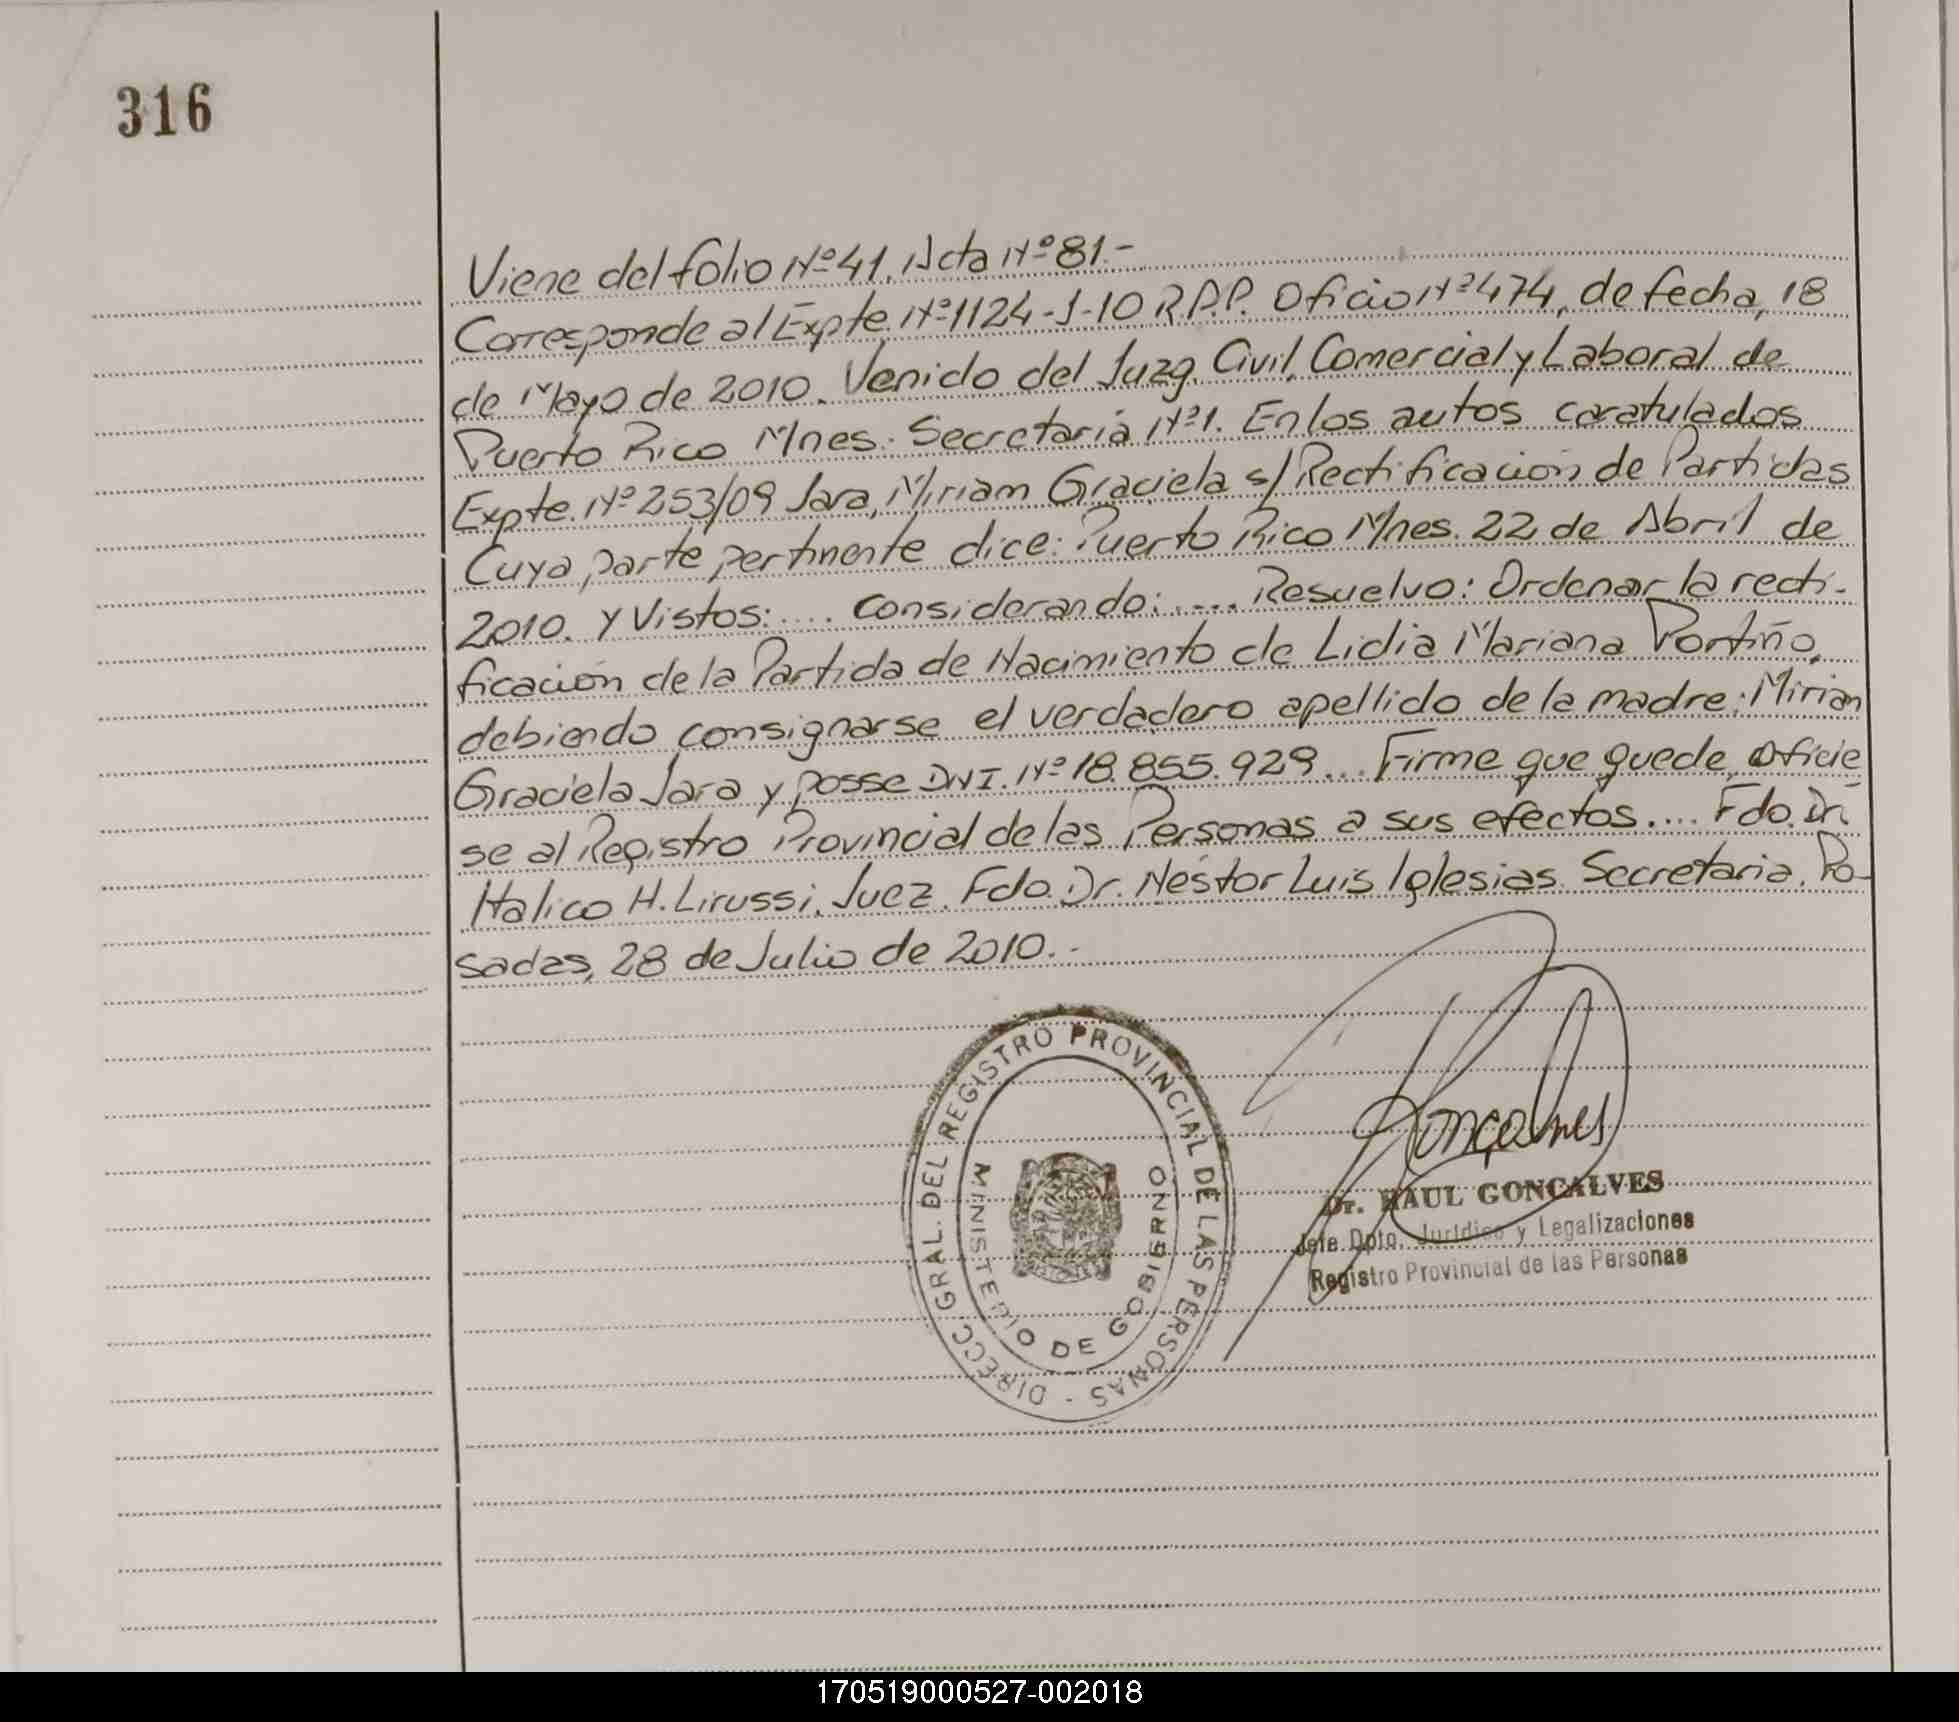 316
Viene del folio Nº 41. Acta Nº 81.-
Corresponde al Expte. Nº 1124-J-10 R.P.P. Oficio Nº 474, de fecha, 18
de Mayo de 2010. Venido del Juzg. Civil, Comercial y Laboral de
Puerto Rico Mnes. Secretaria Nº 1. En los autos caratulados
Expte. Nº 253/09 Jara, Miriam Graciela s/ Rectificación de Partidas
Cuya parte pertinente dice: Puerto Rico Mnes. 22 de Abril de
2010. Y Vistos:.... Considerando:..... Resuelvo: Ordenar la recti-
ficación de la Partida de Nacimiento de Lidia Mariana Portiño,
debiendo consignarse el verdadero apellido de la madre: Mirian
Graciela Jara y posse DNI. Nº 18.855.929... Firme que quede, oficie
se al Registro Provincial de las Personas a sus efectos.... Fdo. Dr.
Italico H. Lirussi, Juez. Fdo. Dr. Néstor Luis Iglesias Secretaria. Po-
sadas, 28 de Julio de 2010.-
DIRECC. GRAL. DEL REGISTRO PROVINCIAL DE LAS PERSONAS -
MINISTERIO DE GOBIERNO
Goncalves
Dr. RAUL GONCALVES
Jefe Dpto. Jurídico y Legalizaciones
Registro Provincial de las Personas
170519000527-002018